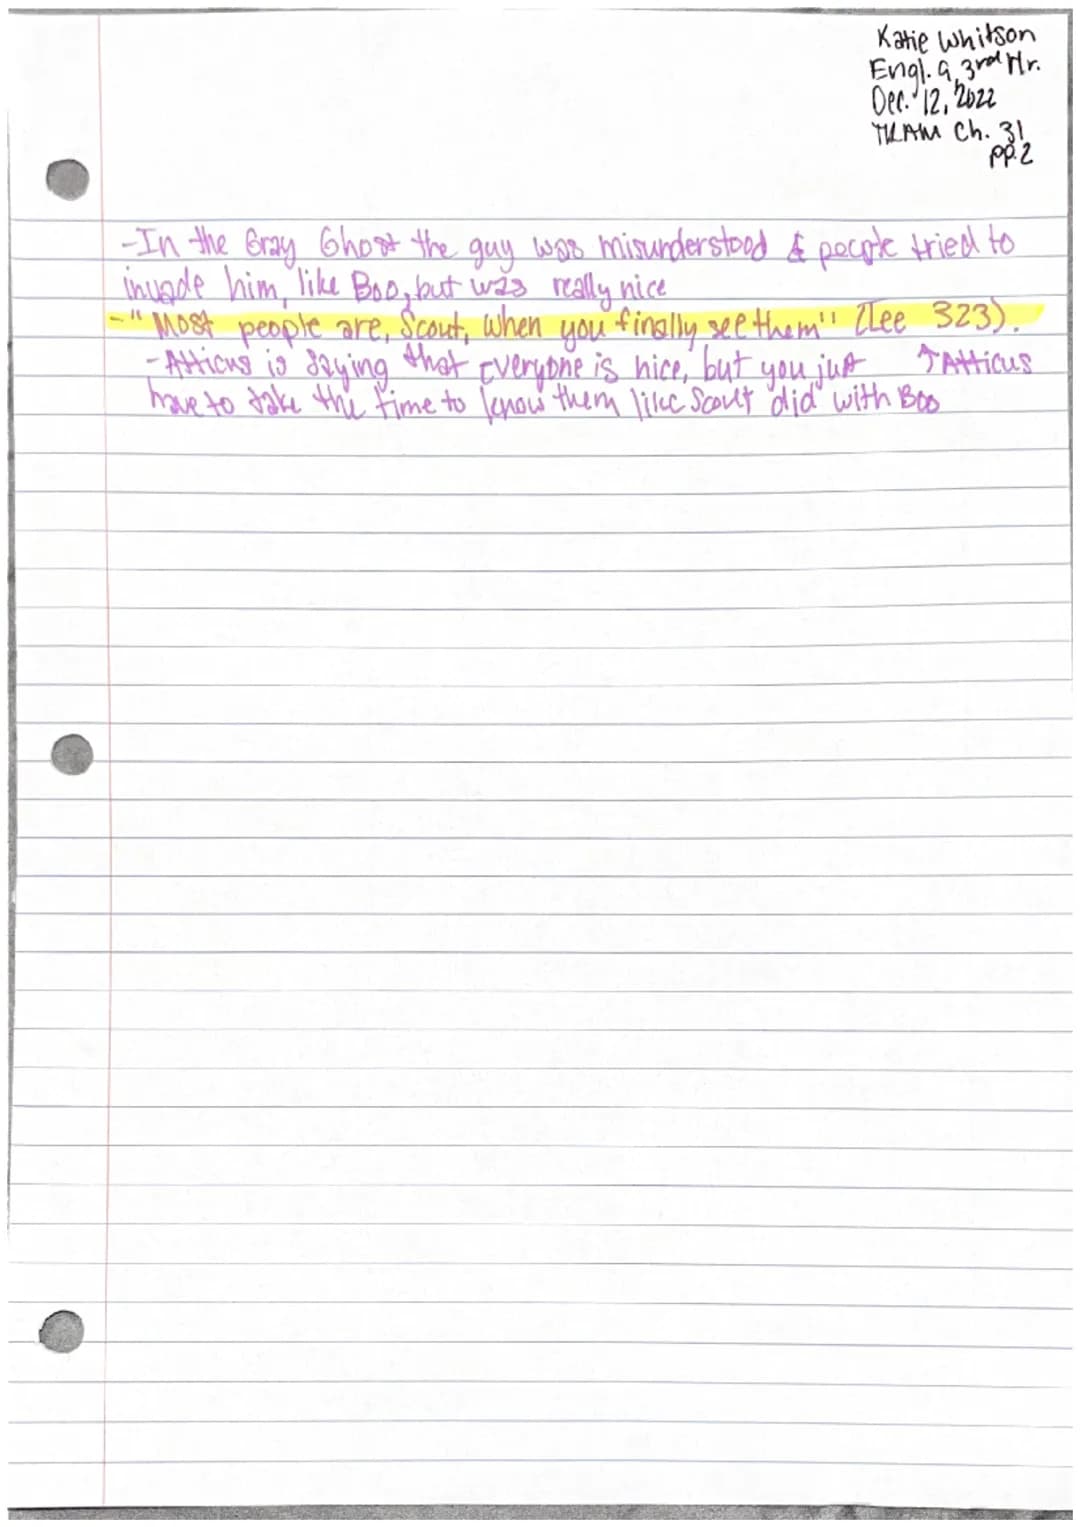 Katie Whitson
Engl. 9, 3rd Hr.
Dec. 12, 2022
TKAM Ch. 31
pp. 2
-In the Gray Ghost the guy was misunderstood & people tried to
invade him, like Boo, but was really nice
-"Most people are, Scout, when you finally see them" (Lee 323).
-Atticus is saying that everyone is nice, but you just ↑Atticus
have to take the time to know them like Scout did with Boo